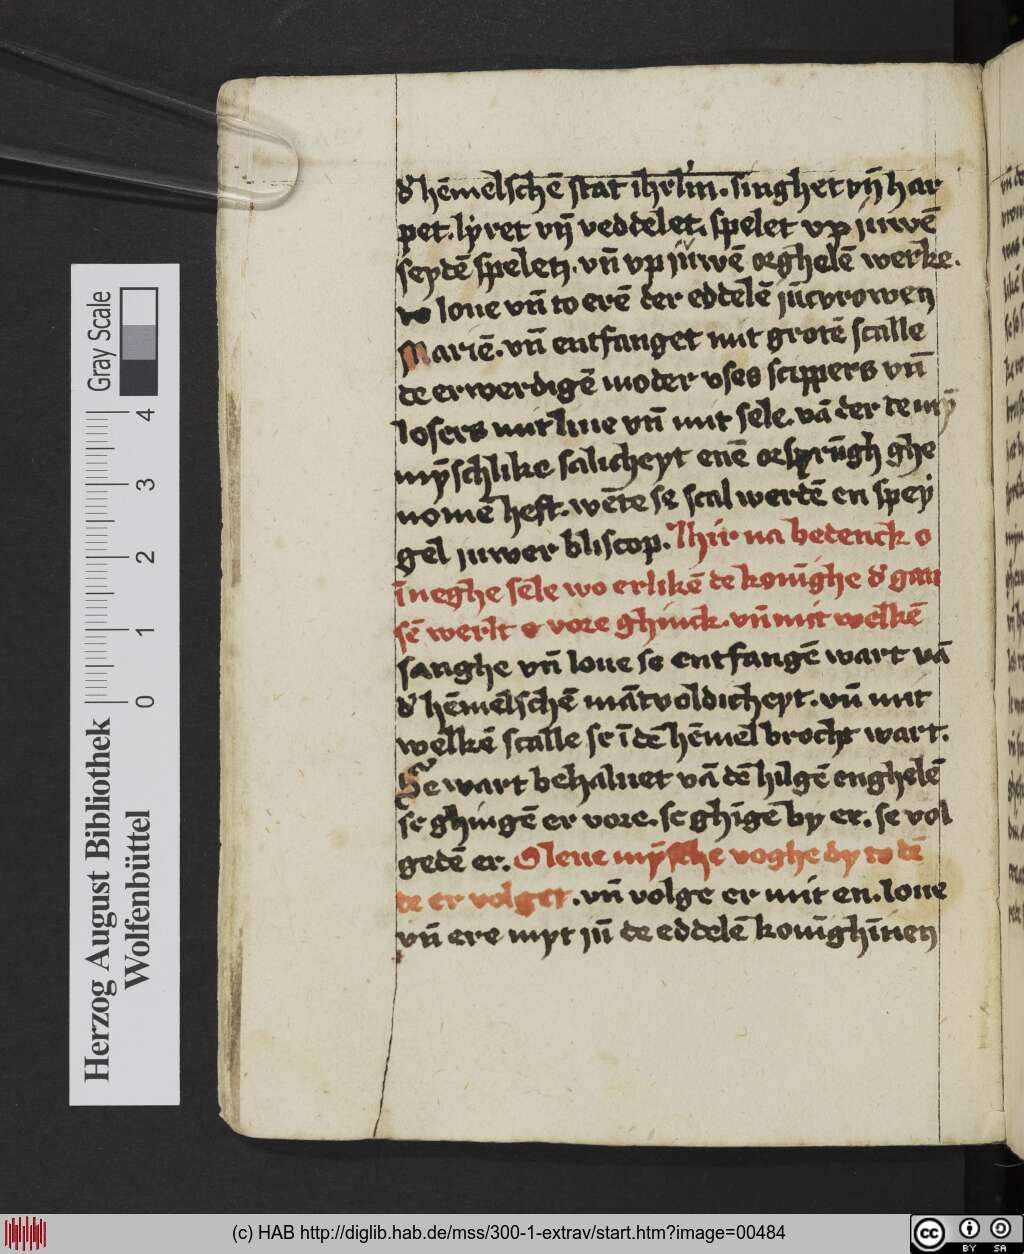 d' hēmelschē stat ihrl'm. singhet vn̄ har
pet. lyret vn̄ veddelet. spelet vp juwē
seydē speletz. vn̄ vp juwē orghelē werke.
to loue vn̄ to erē der eddelē jūcvrowen
Mariē. vn̄ entfanget mit grotē scalle
de erwerdigē moder vses scippers vn̄
losers mit liue vn̄ mit sele. vā der de
mȳschlike salicheyt enē orsprūgh ghe
nomē heft. wēte se scal werdē en spey
gel juwer bliscop. Ihir na bedenck o
īneghe sele wo erlikē de konīghe d' gan
sē werlt o vore ghinck. vn̄ mit welkē
sanghe vn̄ loue se entfangē wart vā
d' hēmelschē māt voldicheyt. vn̄ mit
welkē scalle se ī dē hēmel brocht wart.
Se wart behaluet vā dē hilgē enghelē
se ghingē er vore. se ghīgē by er. se vol
gedē er. O leue mȳsche voghe dy to dē
de er volget. vn̄ volge er mit en. loue
vn̄ ere myt jū de eddelē konīghīnen
Gray Scale
4
3
2
1
0
Herzog August Bibliothek
Wolfenbüttel
(c) HAB http://diglib.hab.de/mss/300-1-extrav/start.htm?image=00484
cc BY SA